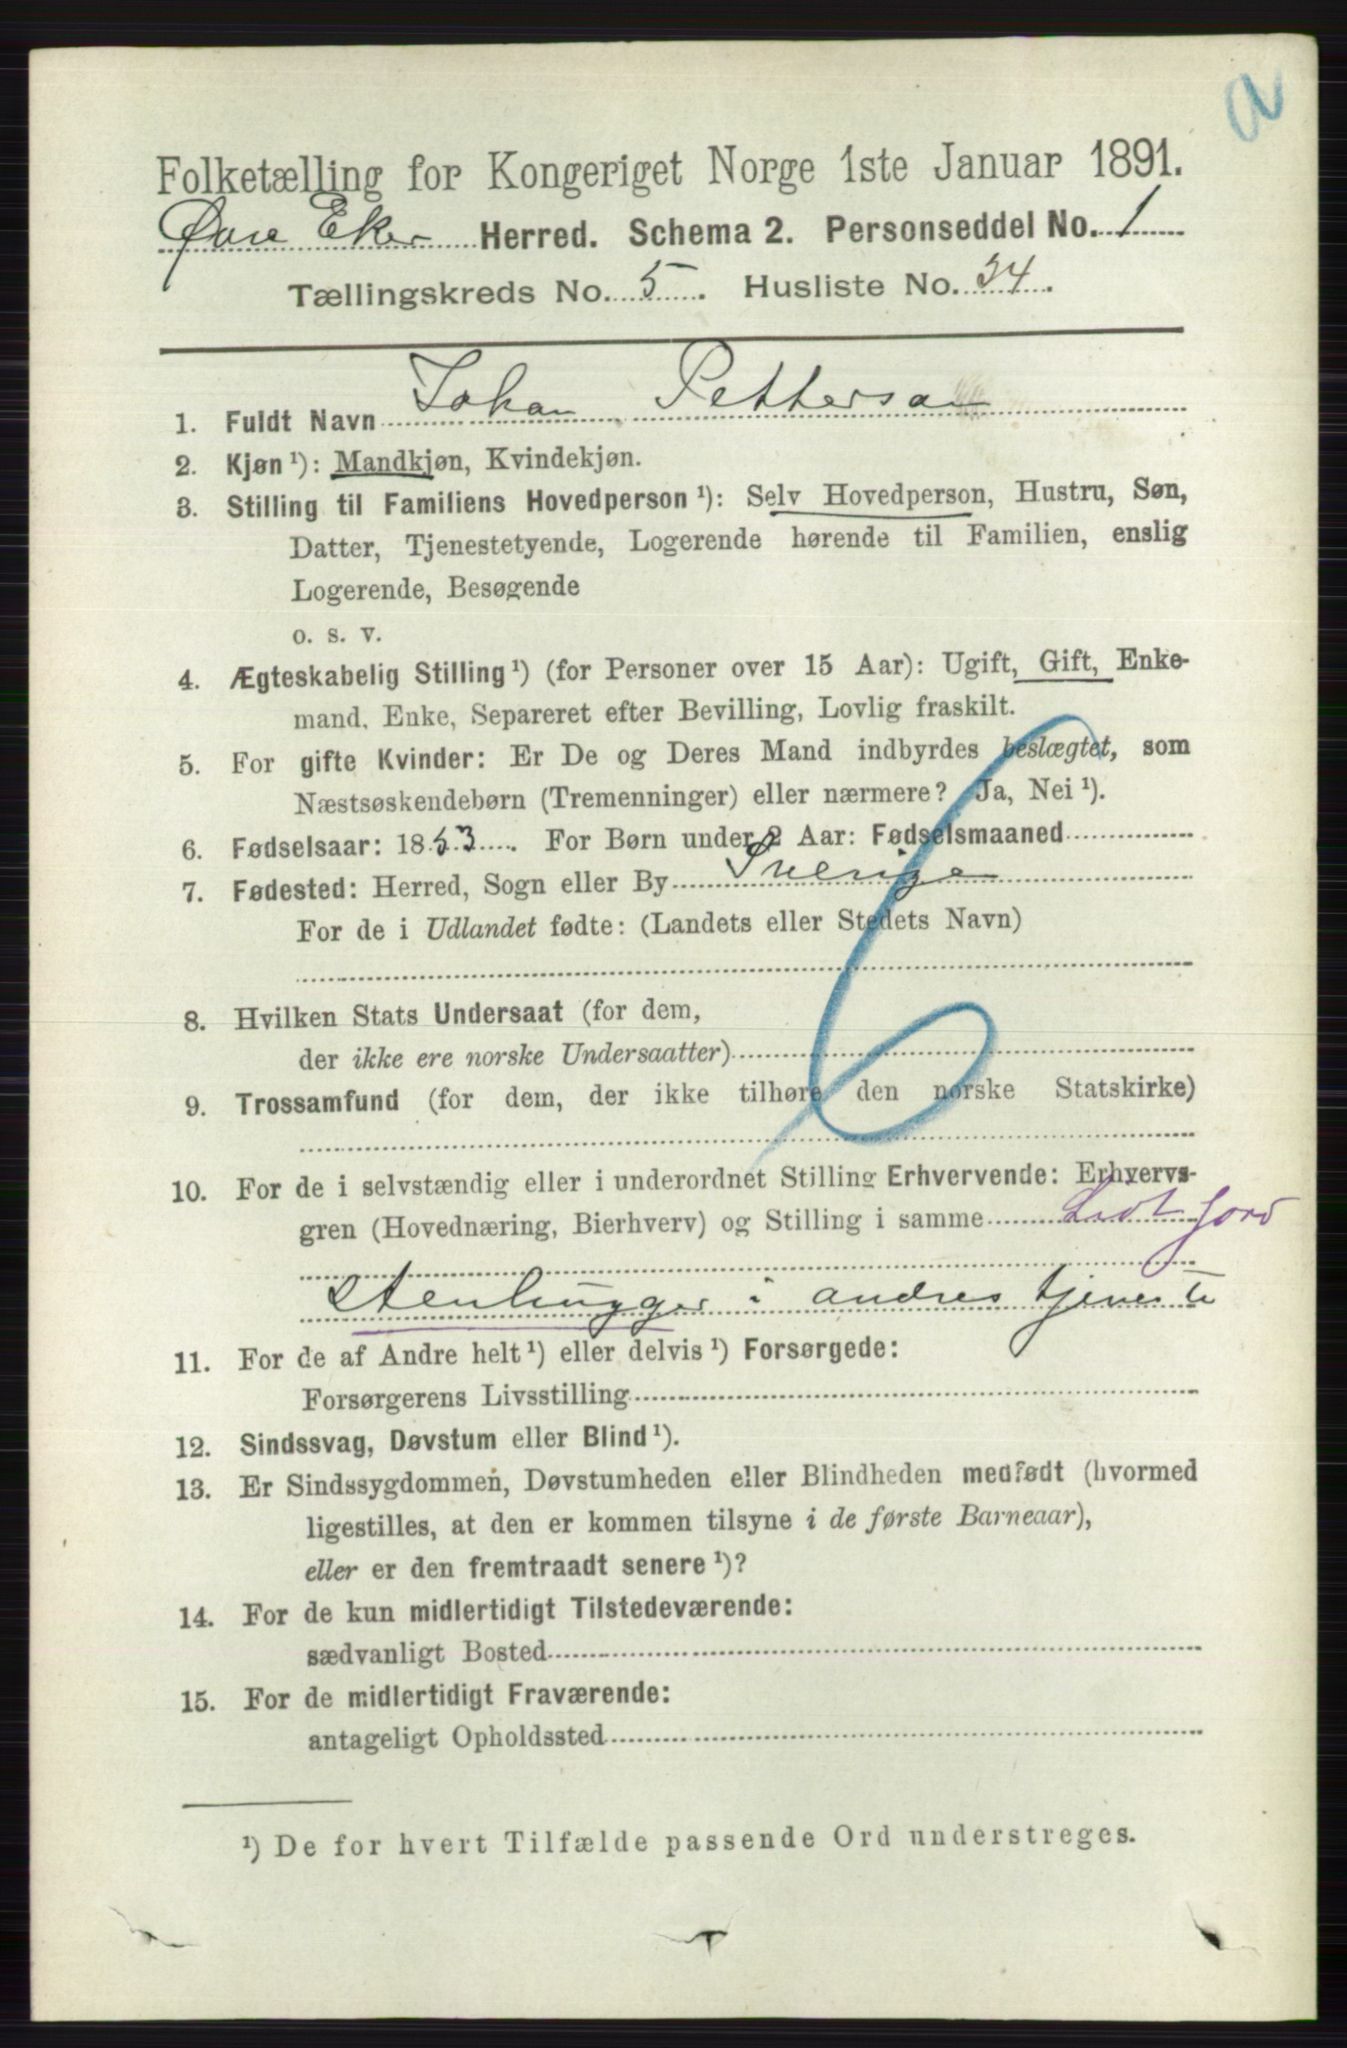 a
Folketælling for Kongeriget Norge 1ste Januar 1891.
Øvre Eker Herred. Schema 2. Personseddel No. 1
Tællingskreds No. 5. Husliste No. 34.
1. Fuldt Navn Johan Petterson
2. Kjøn ¹): Mandkjøn, Kvindekjøn.
3. Stilling til Familiens Hovedperson ¹): Selv Hovedperson, Hustru, Søn,
Datter, Tjenestetyende, Logerende hørende til Familien, enslig
Logerende, Besøgende
o. s. v.
4. Ægteskabelig Stilling ¹) (for Personer over 15 Aar): Ugift, Gift, Enke-
mand, Enke, Separeret efter Bevilling, Lovlig fraskilt.
5. For gifte Kvinder: Er De og Deres Mand indbyrdes beslægtet, som
Næstsøskendebørn (Tremenninger) eller nærmere? Ja, Nei ¹).
6. Fødselsaar: 1853. For Børn under 2 Aar: Fødselsmaaned
7. Fødested: Herred, Sogn eller By Sverige
For de i Udlandet fødte: (Landets eller Stedets Navn)
8. Hvilken Stats Undersaat (for dem,
der ikke ere norske Undersaatter)
9. Trossamfund (for dem, der ikke tilhøre den norske Statskirke)
10. For de i selvstændig eller i underordnet Stilling Erhvervende: Erhvervs-
gren (Hovednæring, Bierhverv) og Stilling i samme Lidt jord
Stenhugger i andres tjeneste
11. For de af Andre helt ¹) eller delvis ¹) Forsørgede:
Forsørgerens Livsstilling
12. Sindssvag, Døvstum eller Blind ¹).
13. Er Sindssygdommen, Døvstumheden eller Blindheden medfødt (hvormed
ligestilles, at den er kommen tilsyne i de første Barneaar),
eller er den fremtraadt senere ¹)?
14. For de kun midlertidigt Tilstedeværende:
sædvanligt Bosted
15. For de midlertidigt Fraværende:
antageligt Opholdssted
¹) De for hvert Tilfælde passende Ord understreges.